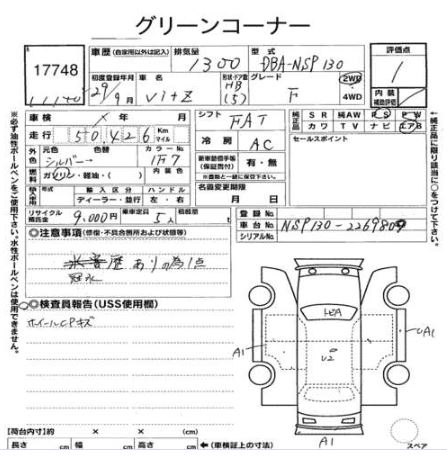 グリーンコーナー
17748
車歴 (自家用以外は記入) 排気量 型式 評価点
1300 DBA-NSP130 1
初度登録年月 車名 形状・ドア数 グレード 2WD 4WD 内装 補助評価
29年9月 Vitz HB (5) F
車検 × 年 月 シフト FAT
走行 50,426 Km マイル 冷房 AC
純正品 SR 純AW PS PW
カワ TV ナビ エアB
セールスポイント
外色 元色 色替 カラーNo. 内装色
シルバー 1F7
燃料 ガソリン・軽油・( )
新車整備手帳 (保証書付) 有・無
※書類と一緒に提出されて下さい
輸入車 輸入区分 ハンドル
ディーラー・並行 左・右
名義変更期限 月 日
リサイクル預託金 9,000円 乗車定員 5人 積載量 t
登録No.
車台No. NSP130-2269809
シリアルNo.
◎注意事項 (修復・不具合箇所および状態等)
冠水歴ありの為1点
冠水
◎検査員報告 (USS使用欄)
ホイールCPキズ
トビA
A1
U2
UA1
A1
スペア
【荷台内寸】約 × × (cm)
長さ cm 幅 cm 高さ cm ←(車検証上の寸法)
※必ず油性ボールペンをご使用下さい。水性ボールペンは使用できません。
←純正品に限り該当に○をつけて下さい。